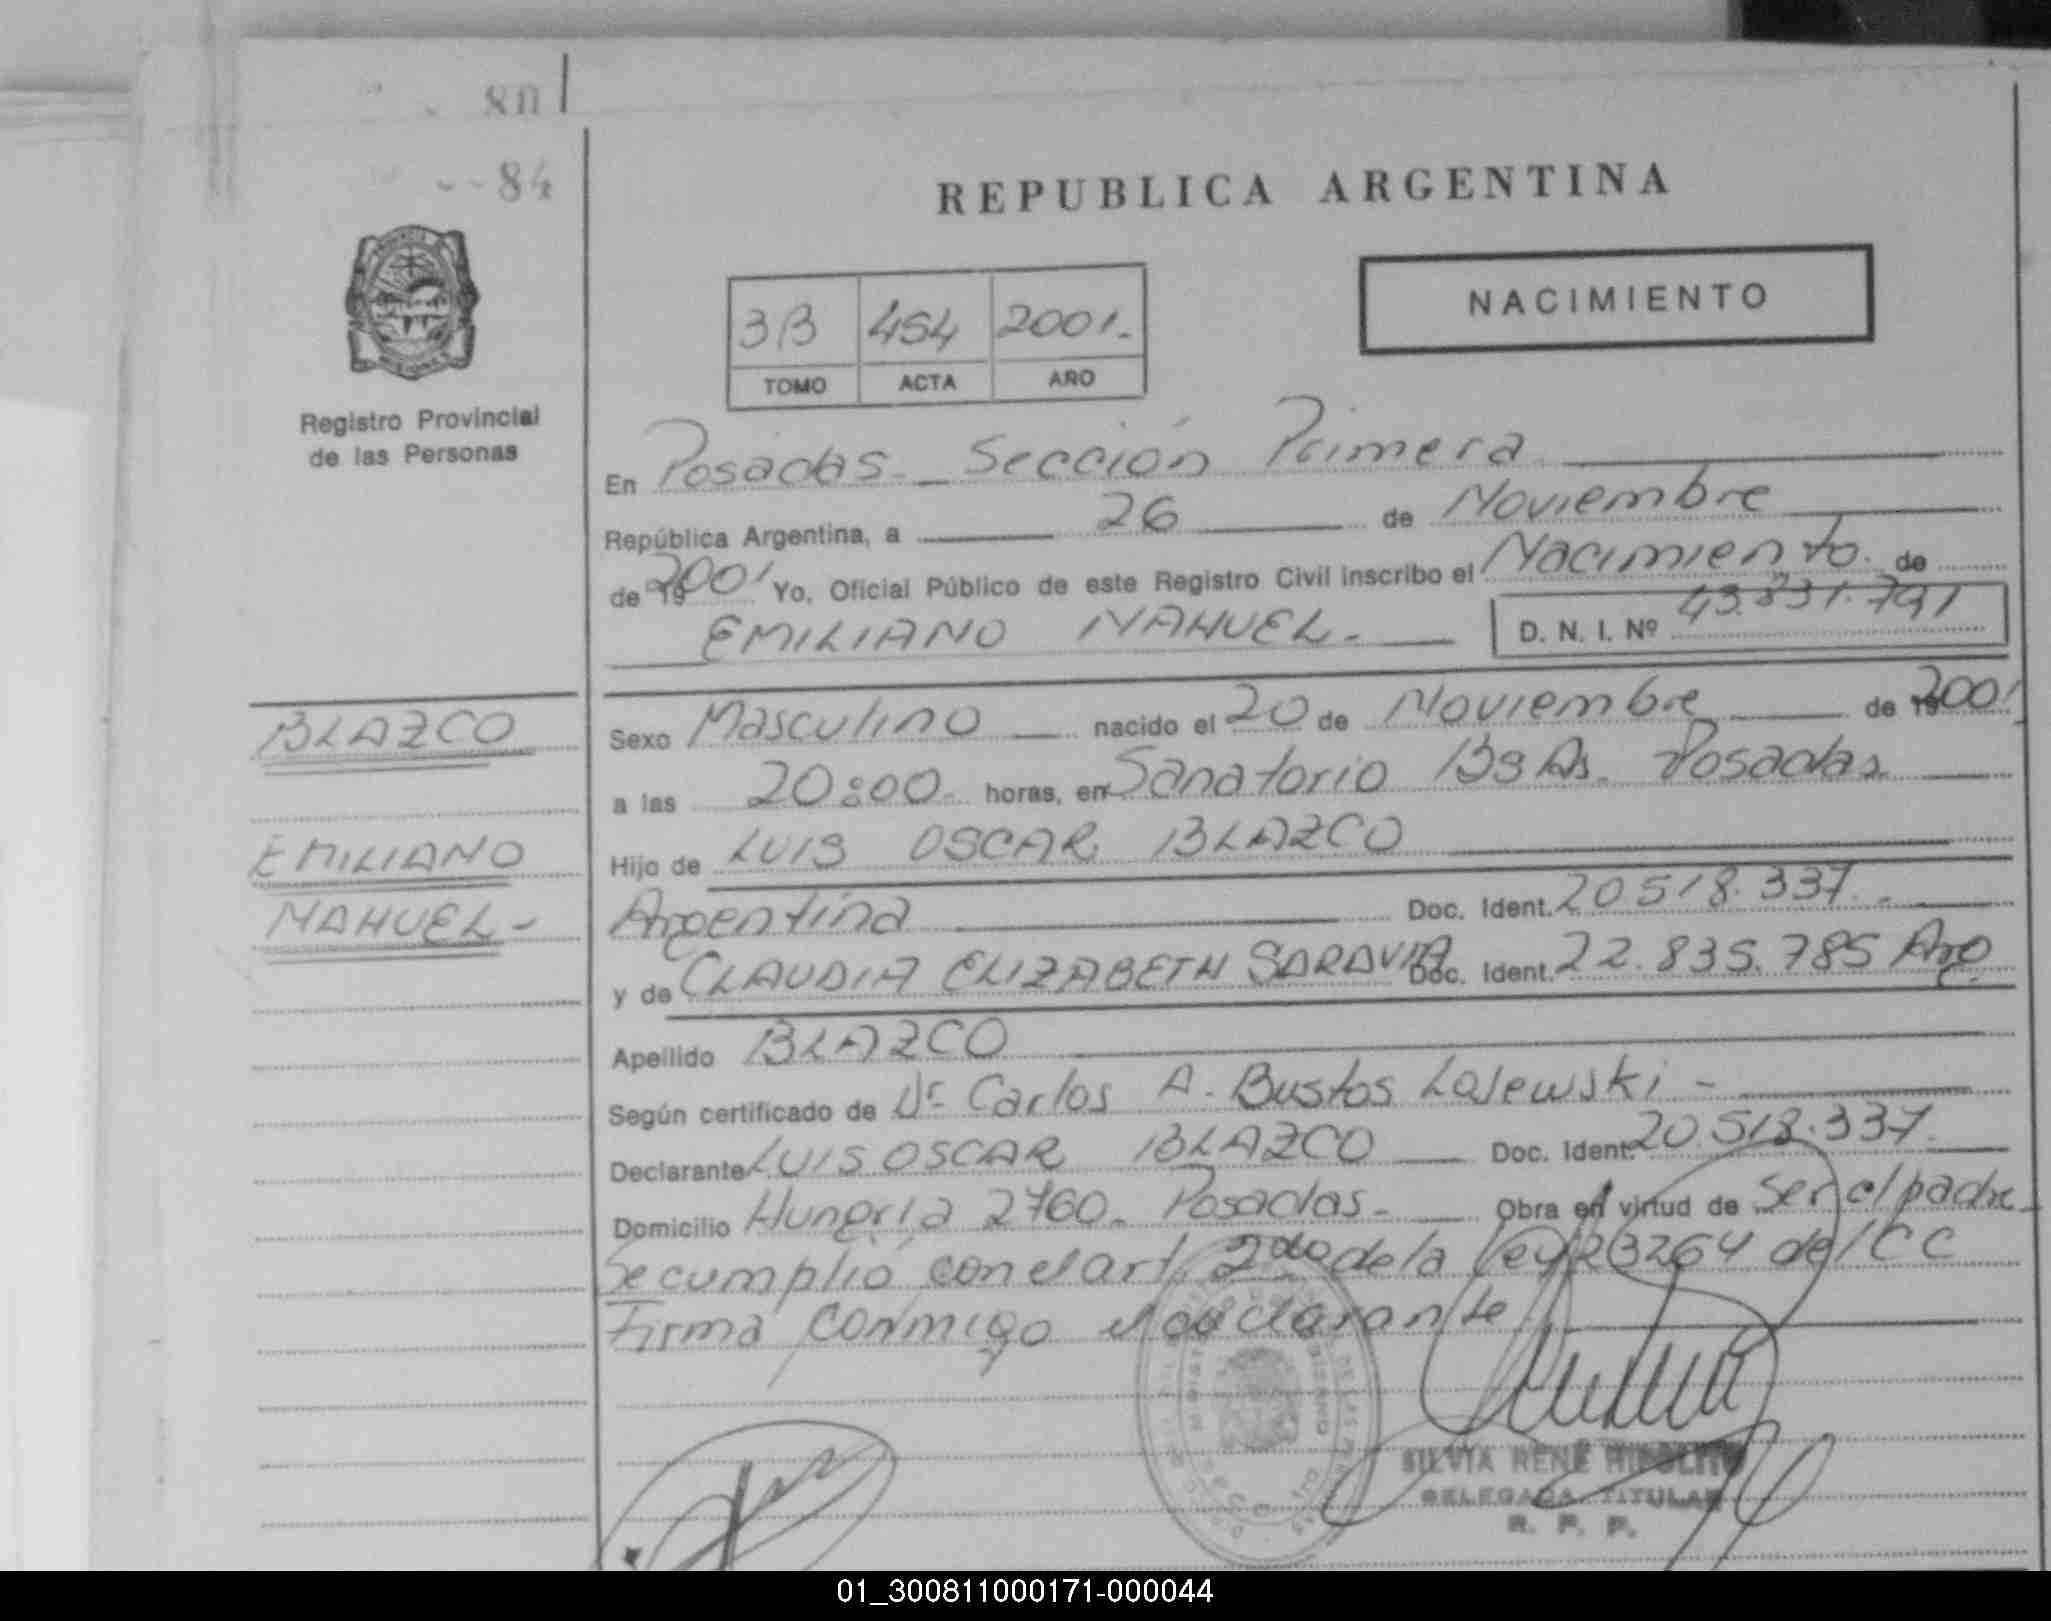 80
84
REPUBLICA ARGENTINA
NACIMIENTO
3B 454 2001.-
TOMO ACTA AÑO
Registro Provincial
de las Personas
En Posadas - Sección Primera
República Argentina, a 26 de Noviembre
de 19 2001 Yo, Oficial Público de este Registro Civil inscribo el Nacimiento de
EMILIANO NAHUEL.- D. N. I. Nº 43.831.791
BLAZCO
EMILIANO
NAHUEL -
Sexo Masculino nacido el 20 de Noviembre de 19 2001
a las 20:00 horas, en Sanatorio Bs As. Posadas
Hijo de LUIS OSCAR BLAZCO
Argentina Doc. Ident. 20518.337.-
y de CLAUDIA ELIZABETH SARAVIA Doc. Ident. 22.835.785 Arg.
Apellido BLAZCO
Según certificado de Dr. Carlos A. Bustos Lajewski -
Declarante LUIS OSCAR BLAZCO Doc. Ident. 20.518.337.
Domicilio Hungría 2760. Posadas - Obra en virtud de Ser el padre
Se cumplió con el art. 2do de la Ley 23264 del CC
Firma conmigo el declarante
SILVIA RENE HIPOLITO
DELEGADA TITULAR
R. P. P.
01_300811000171-000044